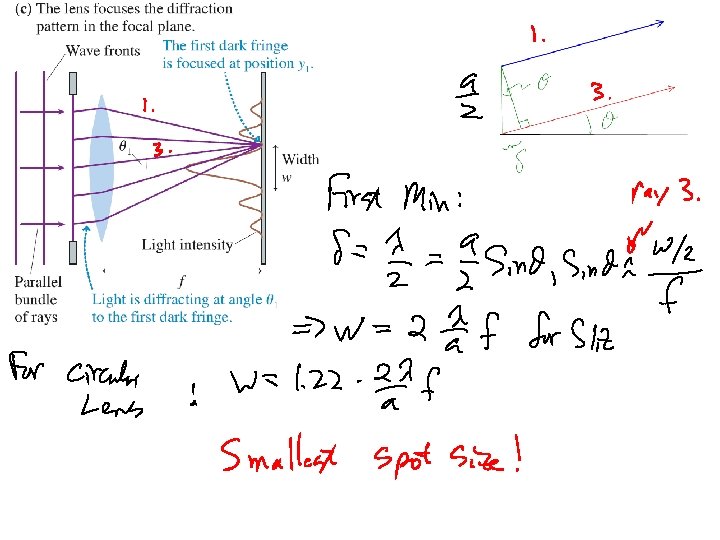 (c) The lens focuses the diffraction
pattern in the focal plane.
Wave fronts
The first dark fringe
is focused at position y₁.
1.
θ₁
3.
Width
w
Light intensity
f
Parallel
bundle
of rays
Light is diffracting at angle θ₁
to the first dark fringe.
1.
a/2
θ
3.
θ
δ
First Min:
ray 3.
δ = λ/2 = a/2 Sinθ, Sinθ ≈ (w/2)/f
=> w = 2 λ/a f for Slit
For circular
Lens : w = 1.22 · 2λ/a f
Smallest spot size!